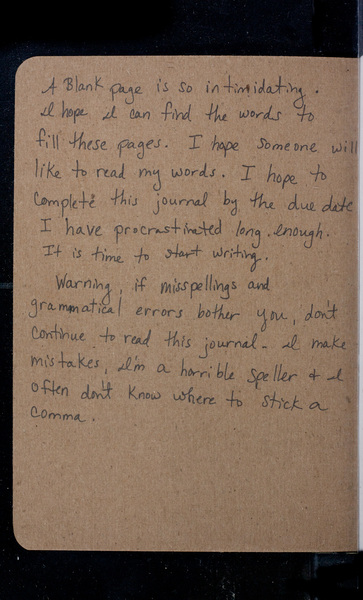 A Blank page is so intimidating.
I hope I can find the words to
fill these pages. I hope someone will
like to read my words. I hope to
complete this journal by the due date
I have procrastinated long enough.
It is time to start writing.
Warning, if misspellings and
grammatical errors bother you, don't
continue to read this journal. I make
mistakes, I'm a horrible speller & I
often don't know where to stick a
comma.